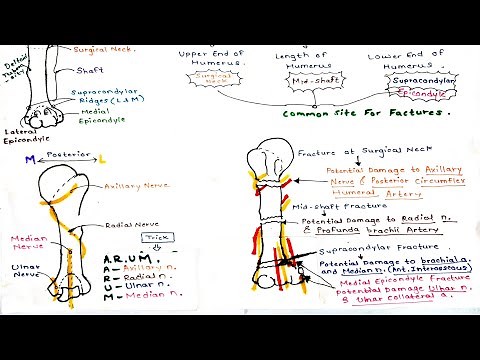 Deltoid
Tuber
osity
Surgical Neck.
Shaft
Supracondylar
Ridges (L&M)
Medial
Epicondyle
Lateral
Epicondyle
Upper End of
Humerus
Surgical
Neck
Length of
Humerus
Mid-shaft
Lower End of
Humerus
Supracondylar
Epicondyle
Common Site For Factures.
M Posterior L
Axillary Nerve
Radial Nerve
Median
Nerve
Ulnar
Nerve
Trick
A.R.U.M.
A- Axillary n.
R- Radial n.
U- Ulnar n.
M- Median n.
Fracture of Surgical Neck
Potential Damage to Axillary
Nerve & Posterior Circumflex
Humeral Artery
Mid-shaft Fracture
Potential Damage to Radial n.
& Profunda brachii Artery
Supracondylar Fracture.
Potential Damage to brachial a.
and Median n. (Ant. Interosseous)
Medial Epicondyle Fracture
potential Damage Ulnar n.
& Ulnar Collateral a.